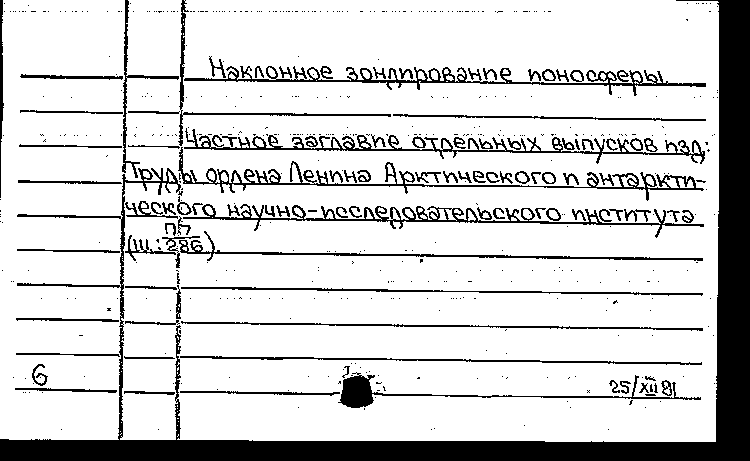 Наклонное зондирование ионосферы.
Частное заглавие отдельных выпусков изд:
Труды ордена Ленина Арктического и антаркти-
ческого научно-исследовательского института
П7
(Ш.: 286).
6
25/XII 81